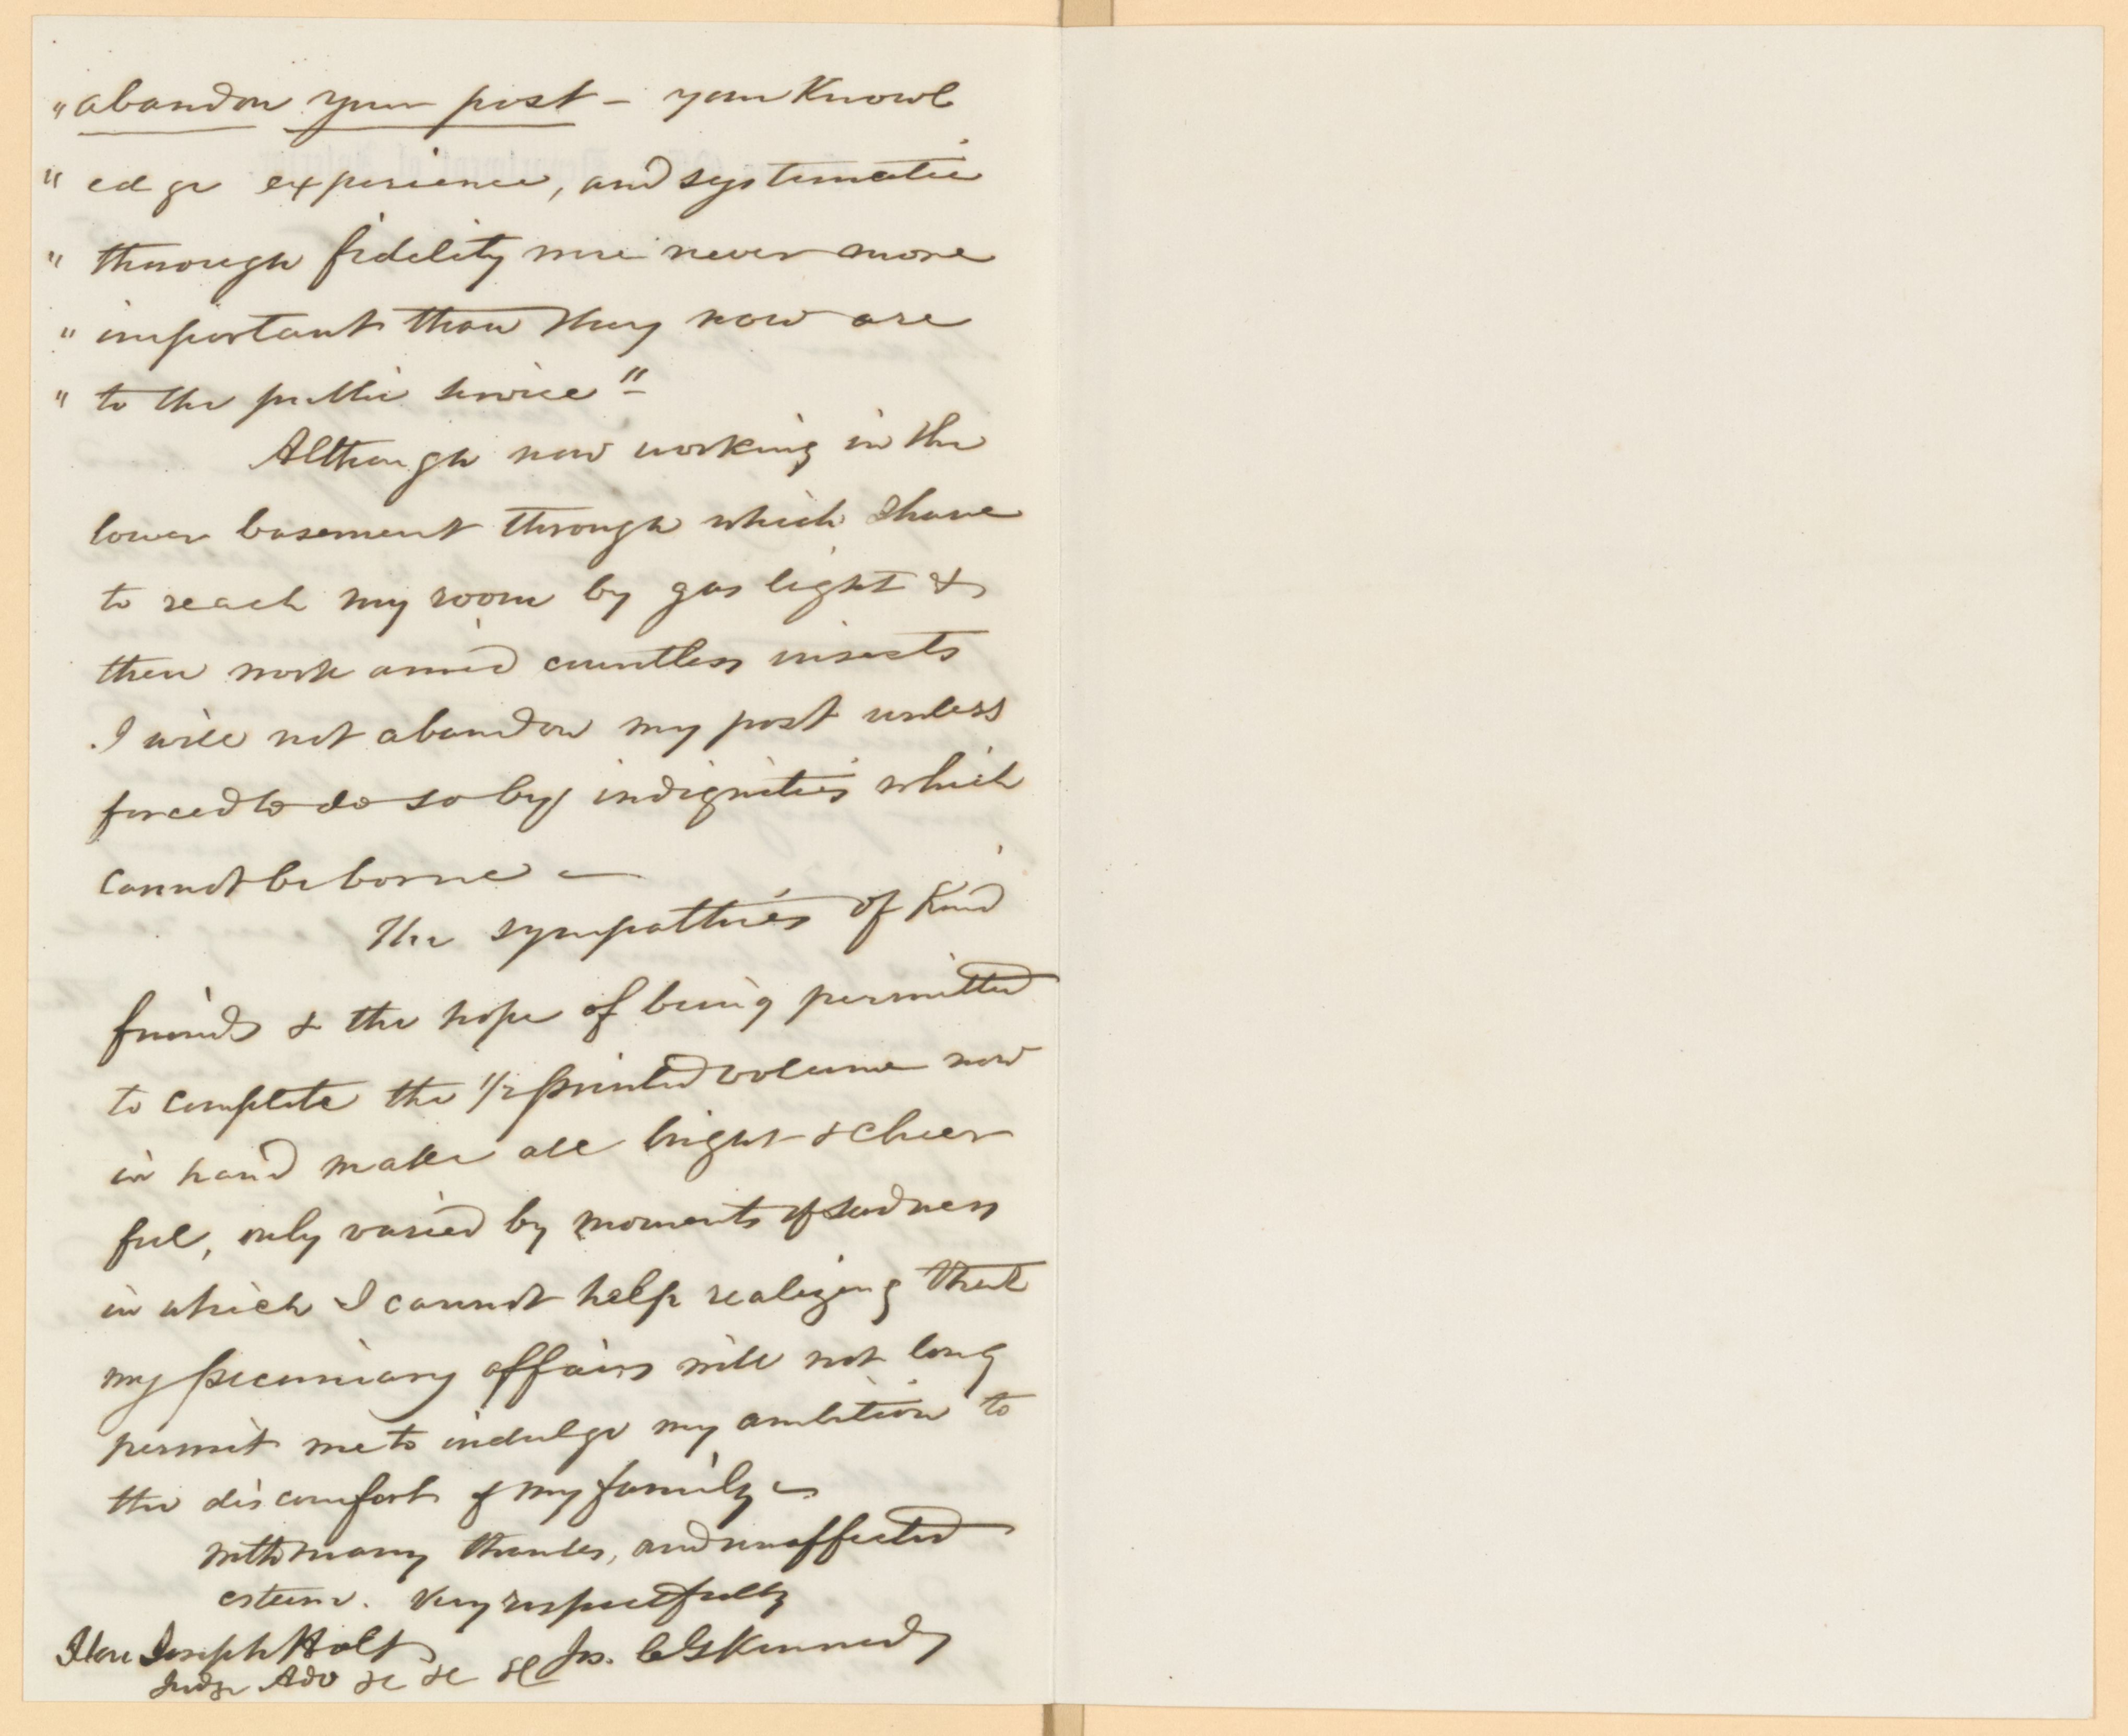 "abandon your post — your Knowl
" edge experience, and systematic
" thorough fidelity were never more
" important than they now are
" to the public service"
Although now working in the
lower basement through which I have
to reach my room by gas light &
then work amid countless insects
I will not abandon my post unless
forced to do so by indignities which
cannot be borne —
The sympathies of Kind
friends & the hope of being permitted
to complete the 1/2 printed volume now
in hand make all bright & cheer
ful, only varied by moments of sadness
in which I cannot help realizing that
my pecuniary affairs will not long
permit me to indulge my ambition to
the discomfort of my family —
With many thanks, and unaffected
esteem. Very respectfully
Hon Joseph Holt Jos. C G Kennedy
Judge Adv &c &c &c